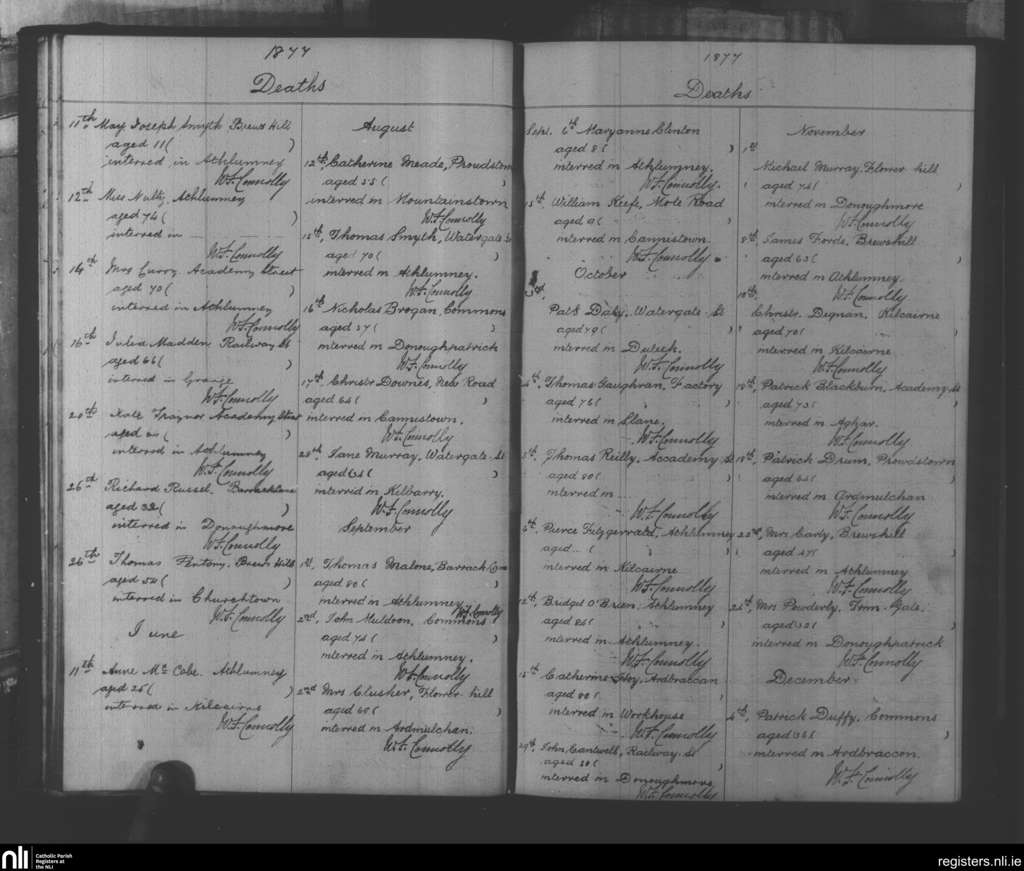 1877
Deaths
11th May Joseph Smyth Brews Hill
aged 11 ( )
interred in Athlumney
W.F. Connolly
12th Miss Nulty, Athlumney
aged 74 ( )
interred in
W.F. Connolly
14th Mrs Curry Academy Street
aged 70 ( )
interred in Athlumney
W.F. Connolly
16th Julia Madden Railway St
aged 66 ( )
interred in Grange
W.F. Connolly
20th Kate Traynor Academy Street
aged ( )
interred in Athlumney
W.F. Connolly
26th Richard Russel, Barracklane
aged 32 ( )
interred in Donoughmore
W.F. Connolly
26th Thomas Brews Hill
aged 52 ( )
interred in Churchtown
W.F. Connolly
June
11th Anne Mc Cabe. Athlumney
aged 25 ( )
interred in Kilcairne
W.F. Connolly
August
12th, Catherine Meade, Proudstown
aged 55 ( )
interred in Mountainstown
W.F. Connolly
15th, Thomas Smyth, Watergate St
aged 70 ( )
interred in Athlumney.
W.F. Connolly
16th Nicholas Brogan, Commons
aged 27 ( )
interred in Donoughpatrick
W.F. Connolly
17th Christr Downes, New Road
aged 64 ( )
interred in Cannistown.
W.F. Connolly
Jane Murray, Watergate St
aged ( )
interrid in Kilbarry.
W.F. Connolly
September
1st, Thomas Malone, Barrack
aged 80 ( )
interred in Athlumney
W.F. Connolly
2nd, John Muldoon, Commons
aged 74 ( )
interred in Athlumney.
W.F. Connolly
2nd Mrs Clusher, Flower hill
aged 60 ( )
interred in Ardmulchan.
W.F. Connolly
1877
Deaths
Sept. 6th Maryanne Clinton
aged 8 ( )
interred in Athlumney.
W.F. Connolly.
15th William Keefe, Mote Road
aged 9 ( )
interred in Cannistown.
W.F. Connolly
October
3rd,
Patk Daly, Watergate St
aged 49 ( )
interred in Duleek.
W.F. Connolly
4th, Thomas Gaughran, Factory
aged 76 ( )
interred in Slane,
W.F. Connolly
5th, Thomas Reilly, Accademy St
aged 80 ( )
interred in
W.F. Connolly
Pierce Fitzgerrald, Athlumney
aged ... ( )
interred in Kilcairne
W.F. Connolly
12th, Bridget O'Brien, Athlumney
aged ( )
interred in Athlumney.
W.F. Connolly
15th Catherine Ardbraccan
aged 80 ( )
interred in Workhouse
W.F. Connolly
29th, John Cantwell, Railway St
aged 20 ( )
interred in Donoughmore
W.F. Connolly
November
1st
Michael Murray, Flower hill
aged 74 ( )
interred in Donoughmore
W.F. Connolly
8th, James Forde, Brewshill
aged 63 ( )
interred in Athlumney.
W.F. Connolly
10th,
Christr. Degnan, Kilcairne
aged 70 ( )
interred in Kilcairne
W.F. Connolly
Patrick Blackburn, Academy St
aged 73 ( )
interred in Aghar.
W.F. Connolly
18th, Patrick Drum, Proudstown
aged ( )
interred in Ardmulchan
W.F. Connolly
22nd, Mrs Carly, Brewshill
aged 47 ( )
interred in Athlumney
W.F. Connolly
Mrs Powderly, Gate.
aged 32 ( )
interred in Donoughpatrick
W.F. Connolly
December
4th, Patrick Duffy, Commons
aged ( )
interred in Ardbraccan.
W.F. Connolly
nli
Catholic Parish
Registers at
the NLI
registers.nli.ie